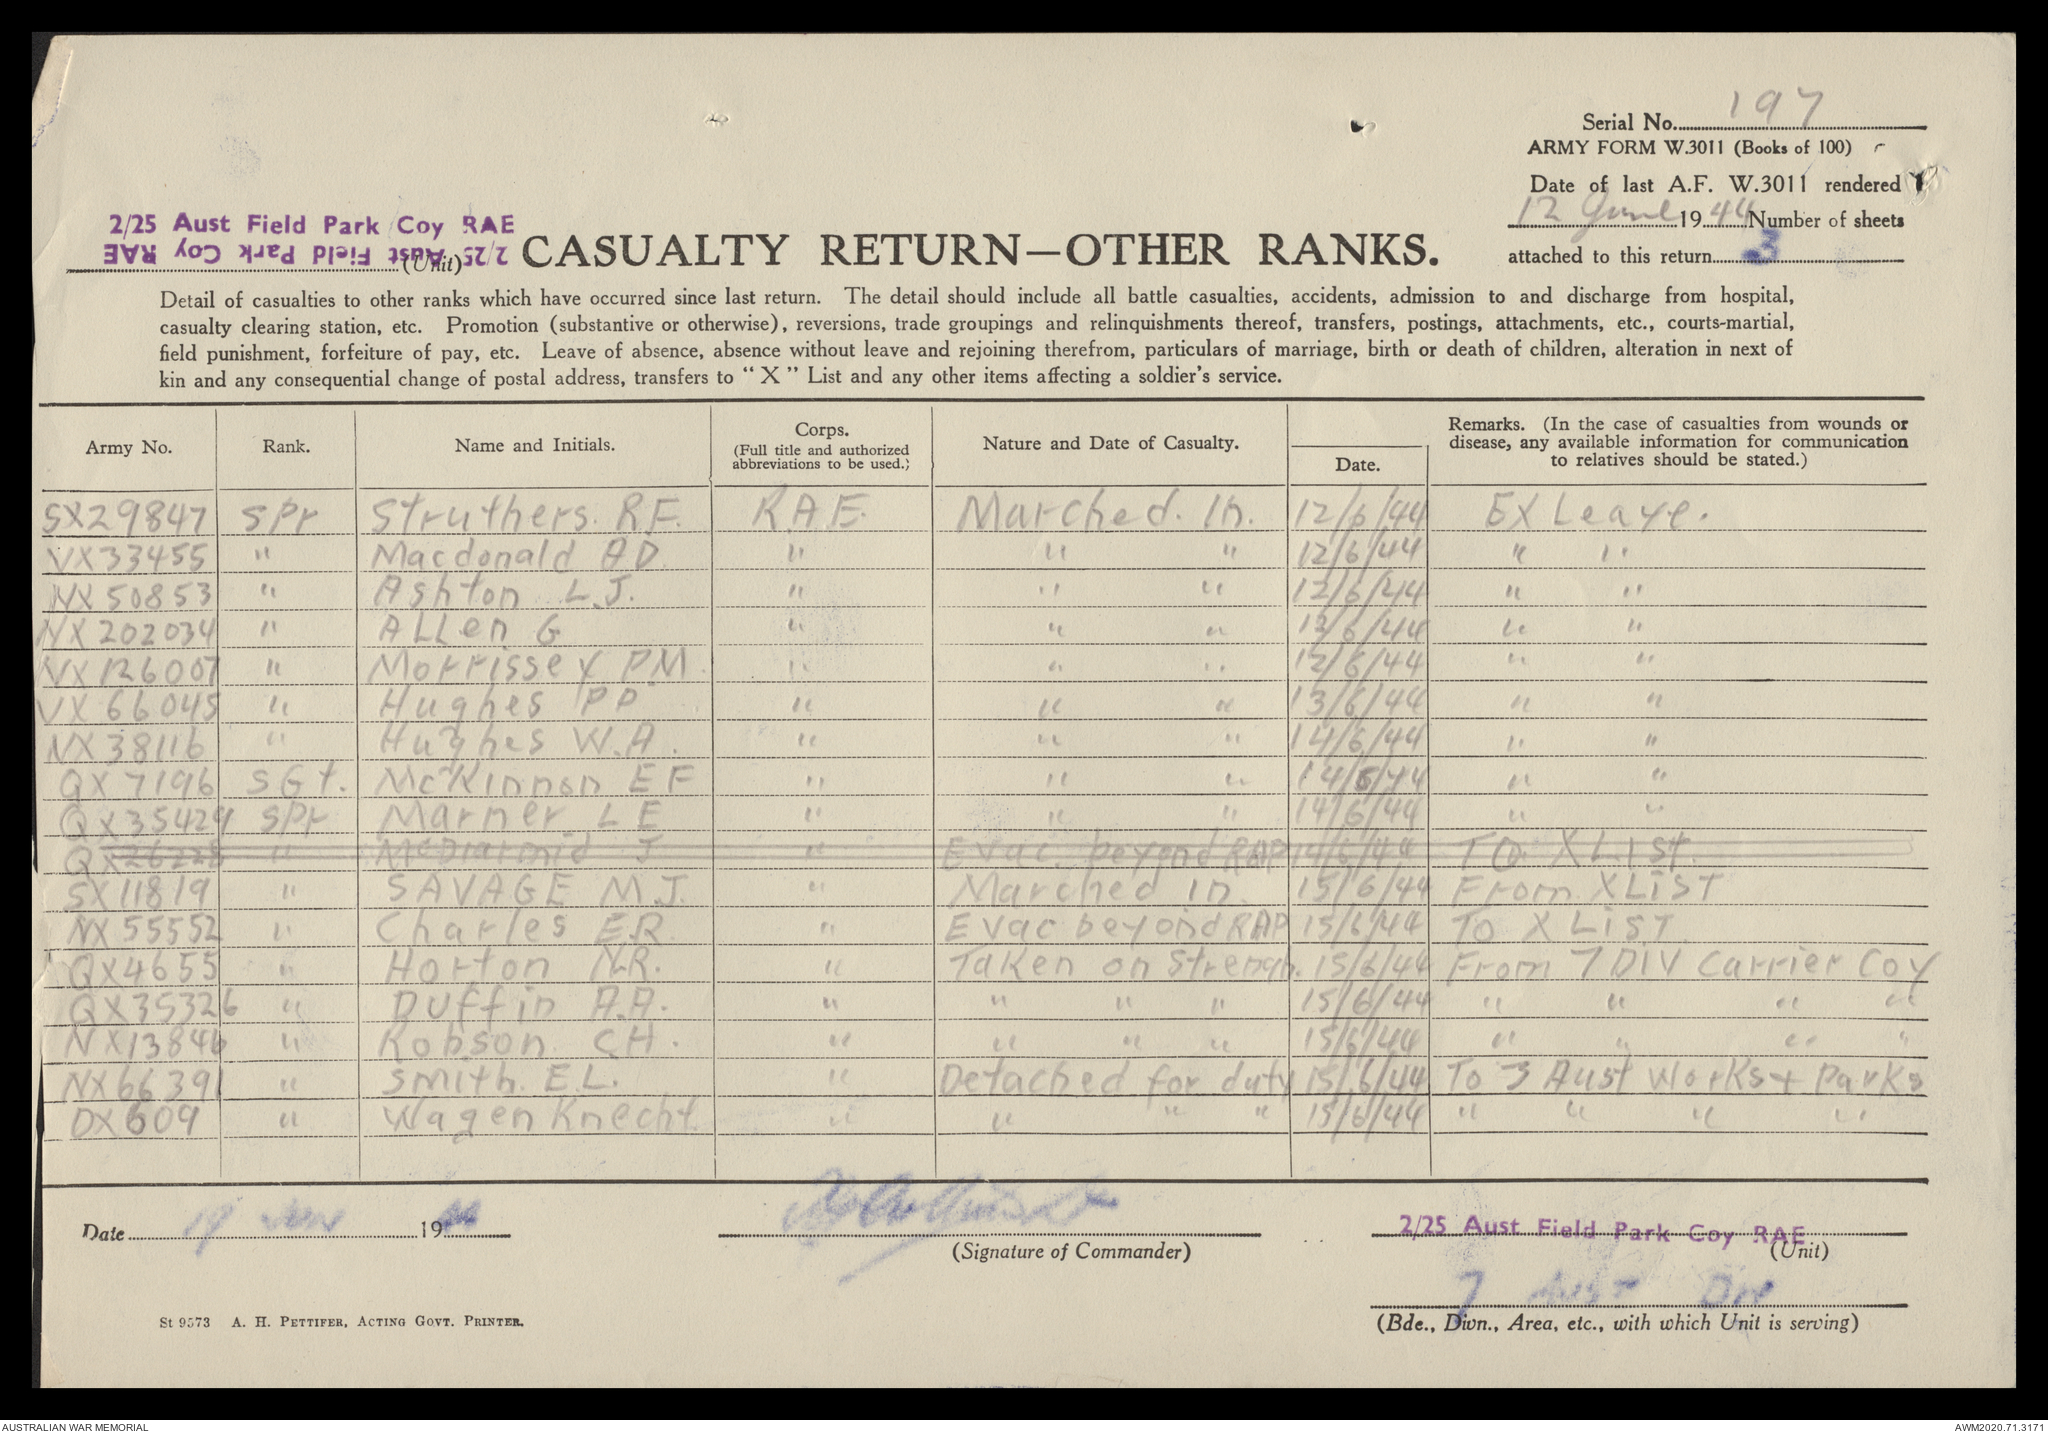 Serial No. 197
ARMY FORM W.3011 (Books of 100)
Date of last A.F. W.3011 rendered
12 June 1944 Number of sheets
attached to this return 3
2/25 Aust Field Park Coy RAE
2/25 Aust Field Park Coy RAE
(Unit)
CASUALTY RETURN—OTHER RANKS.
Detail of casualties to other ranks which have occurred since last return. The detail should include all battle casualties, accidents, admission to and discharge from hospital,
casualty clearing station, etc. Promotion (substantive or otherwise), reversions, trade groupings and relinquishments thereof, transfers, postings, attachments, etc., courts-martial,
field punishment, forfeiture of pay, etc. Leave of absence, absence without leave and rejoining therefrom, particulars of marriage, birth or death of children, alteration in next of
kin and any consequential change of postal address, transfers to "X" List and any other items affecting a soldier's service.
Army No. Rank. Name and Initials. Corps. (Full title and authorized abbreviations to be used.) Nature and Date of Casualty. Date. Remarks. (In the case of casualties from wounds or disease, any available information for communication to relatives should be stated.)
SX29847 Spr Struthers. R.F. RAE. Marched. In. 12/6/44 EX Leave.
VX33455 " Macdonald AD " " " 12/6/44 " "
NX50853 " Ashton L.J. " " " 12/6/44 " "
NX202034 " ALLen G " " " 12/6/44 " "
VX126007 " Morrissey PM. " " " 12/6/44 " "
VX66045 " Hughes PP " " " 13/6/44 " "
NX38116 " Hughes W.A. " " " 14/6/44 " "
QX7196 SGt. McKinnon EF " " " 14/6/44 " "
QX35429 Spr Marner LE " " " 14/6/44 " "
QX26228 " McDiarmid J " Evac. beyond RAP 14/6/44 TO X List.
SX11819 " SAVAGE M.J. " Marched In. 15/6/44 From X LiST
NX55552 " Charles ER. " Evac beyond RAP 15/6/44 To X LiST.
QX4655 " Horton N.R. " Taken on Strengh. 15/6/44 From 7 DIV Carrier Coy
QX35326 " Duffin A.A. " " " " 15/6/44 " " " "
NX13846 " Robson CH. " " " " 15/6/44 " " " "
NX66391 " Smith. E.L. " Detached for duty 15/6/44 To 3 Aust Works + Parks
DX609 " WagenKnecht. " " " " 15/6/44 " " " "
Date 19 June 1944
(Signature of Commander)
2/25 Aust Field Park Coy RAE
(Unit)
7 Aust Div
(Bde., Divn., Area, etc., with which Unit is serving)
St 9573 A. H. PETTIFER, ACTING GOVT. PRINTER.
AUSTRALIAN WAR MEMORIAL
AWM2020.71.3171